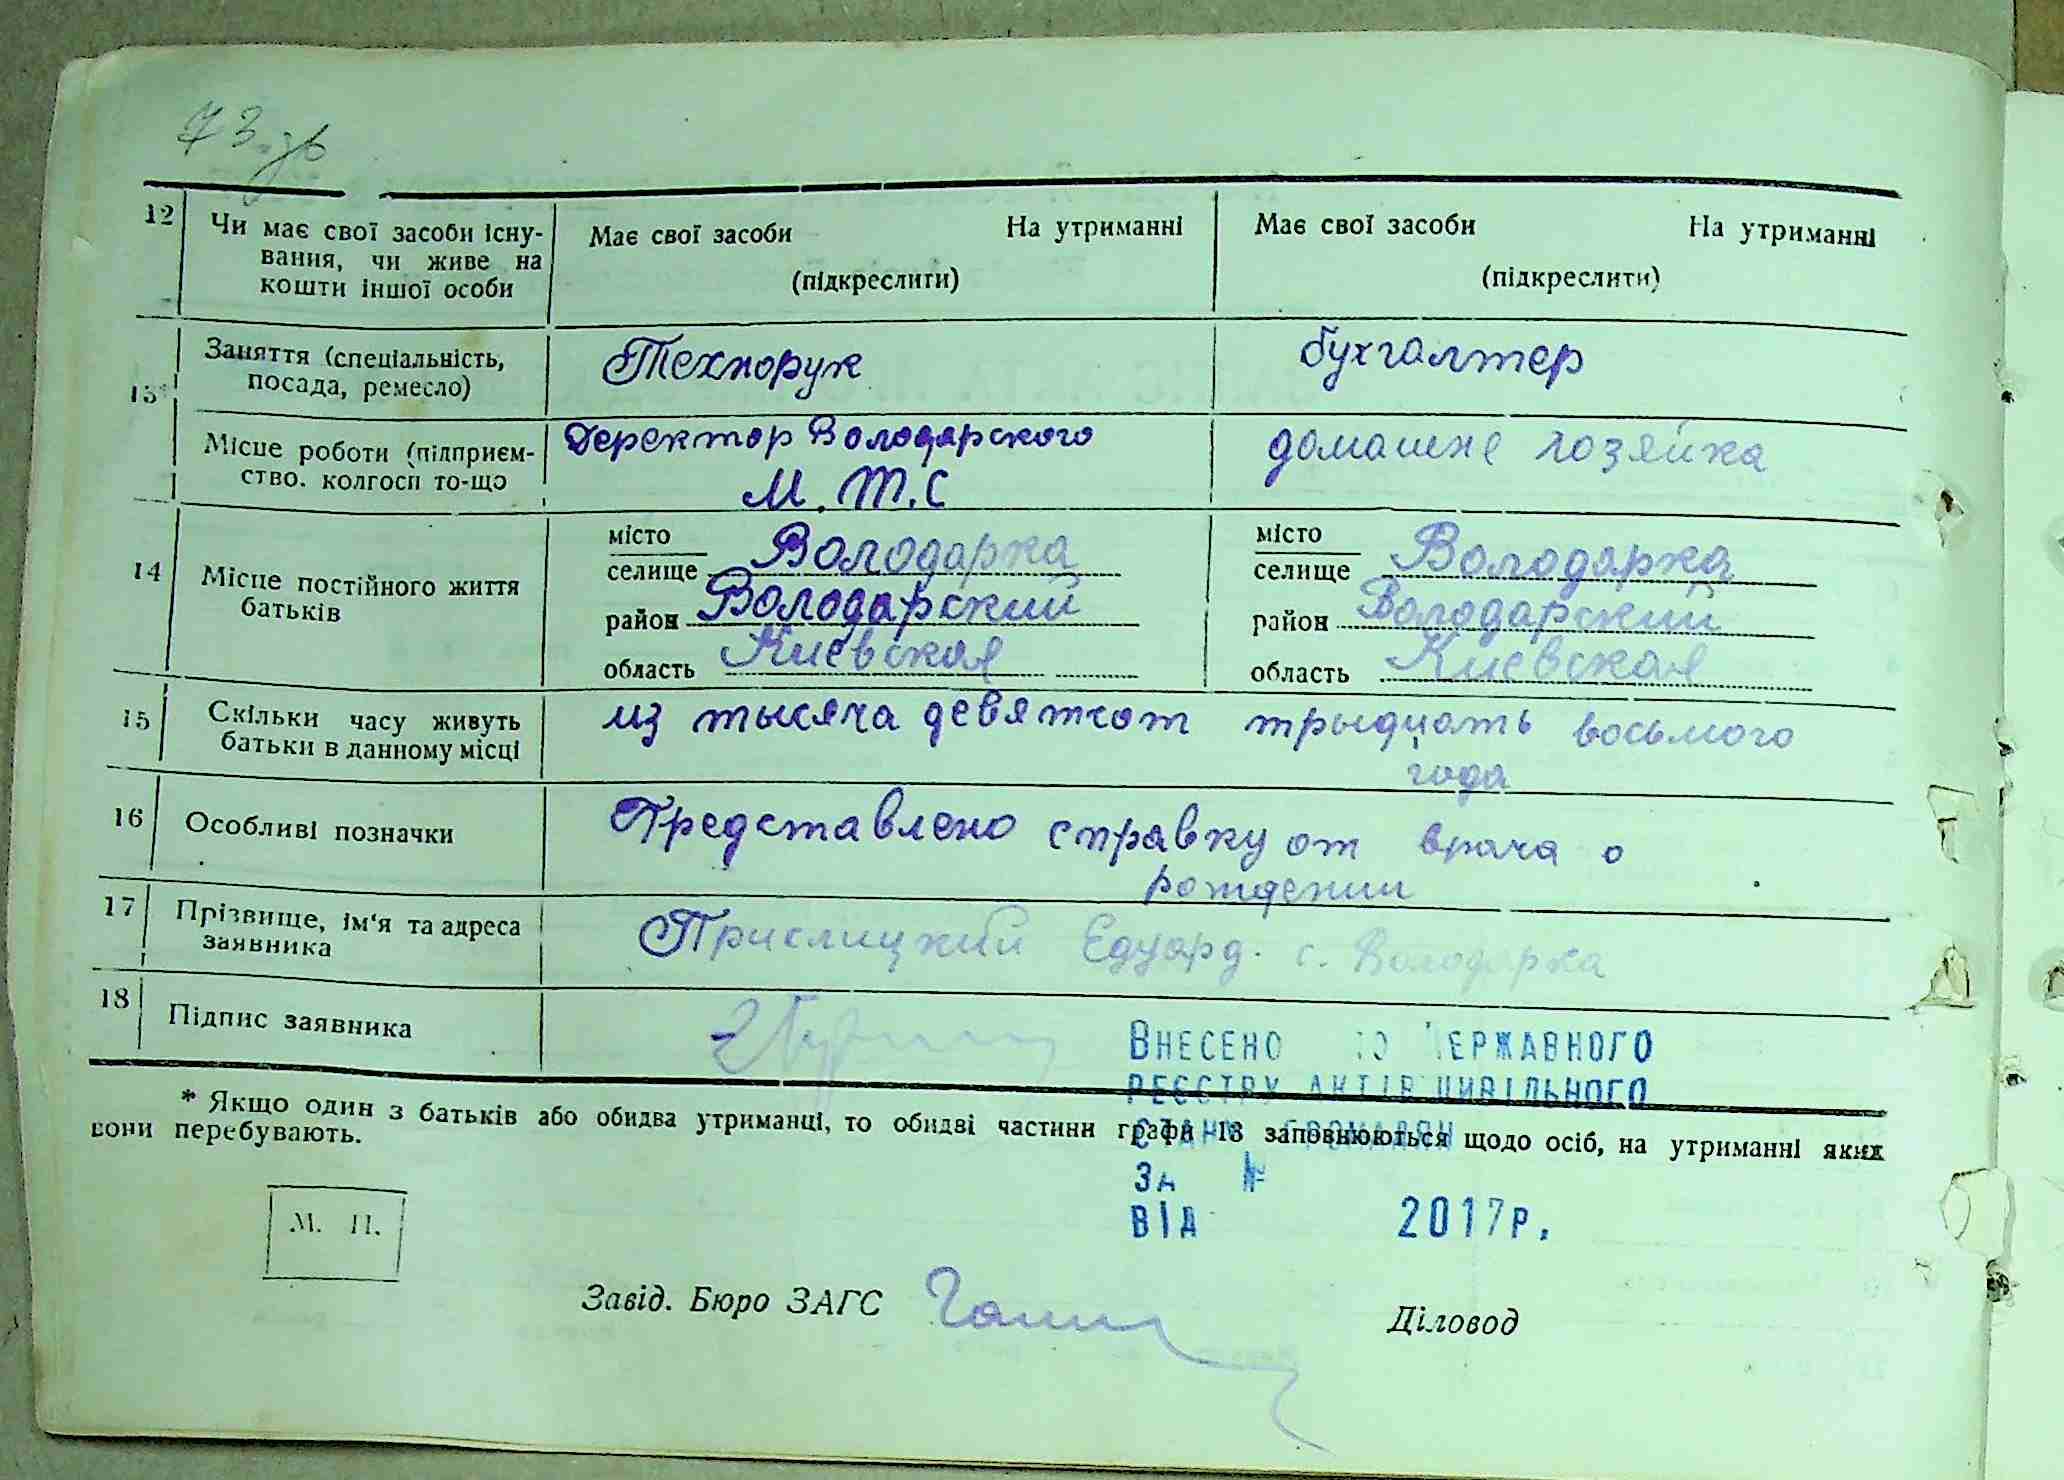 73.зв
12 Чи має свої засоби існу- Має свої засоби На утриманні Має свої засоби На утриманні
вання, чи живе на (підкреслити) (підкреслити)
кошти іншої особи
13* Заняття (спеціальність, Технорук бухгалтер
посада, ремесло)
Місце роботи (підприєм- Деректор Володарского домашне хозяйка
ство. колгосп то-що М.Т.С
14 Місце постійного життя батьків
місто Володарка місто Володарка
селище селище
район Володарский район Володарский
область Киевская область Киевская
15 Скільки часу живуть из тысяча девятсот трыдцать восьмого
батьки в данному місці года
16 Особливі позначки Представлено справку от врача о
рождении
17 Прізвище, ім'я та адреса Прислицкий Едуард. с. Володарка
заявника
18 Підпис заявника
Внесено до Державного
реєстру актів цивільного
стану громадян
за №
від 2017р.
* Якщо один з батьків або обидва утриманці, то обидві частини графи 13 заповнюються щодо осіб, на утриманні яких
вони перебувають.
М. П.
Завід. Бюро ЗАГС Діловод